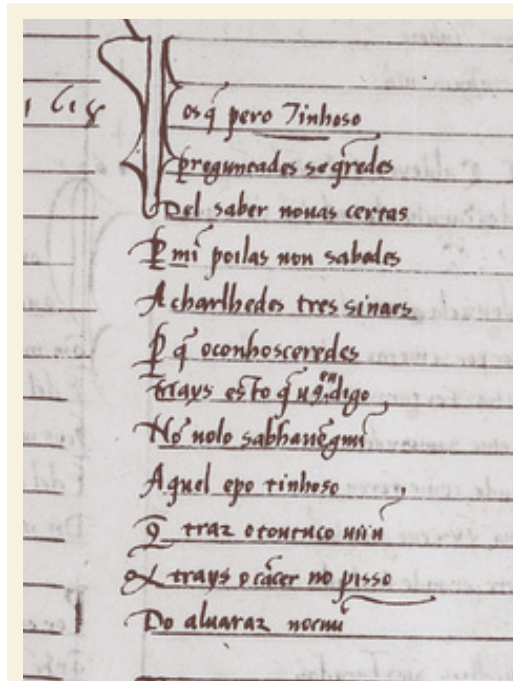 1618
Vosq̃ pero Tinhoso
Preguntades seq̃redes
Del saber nouas certas
P mĩ poilas non sabedes
Acharlhedes tres sinaes
P q̃ oconhosceredes
trays esto q̃ uȷ̃ en digo
No uolo sabha nẽgmĩ
Aquel epo tinhoso
Q̃ traz otoutuco nũu
& trays o cãcer no pisso
Do aluaraz nocnũ